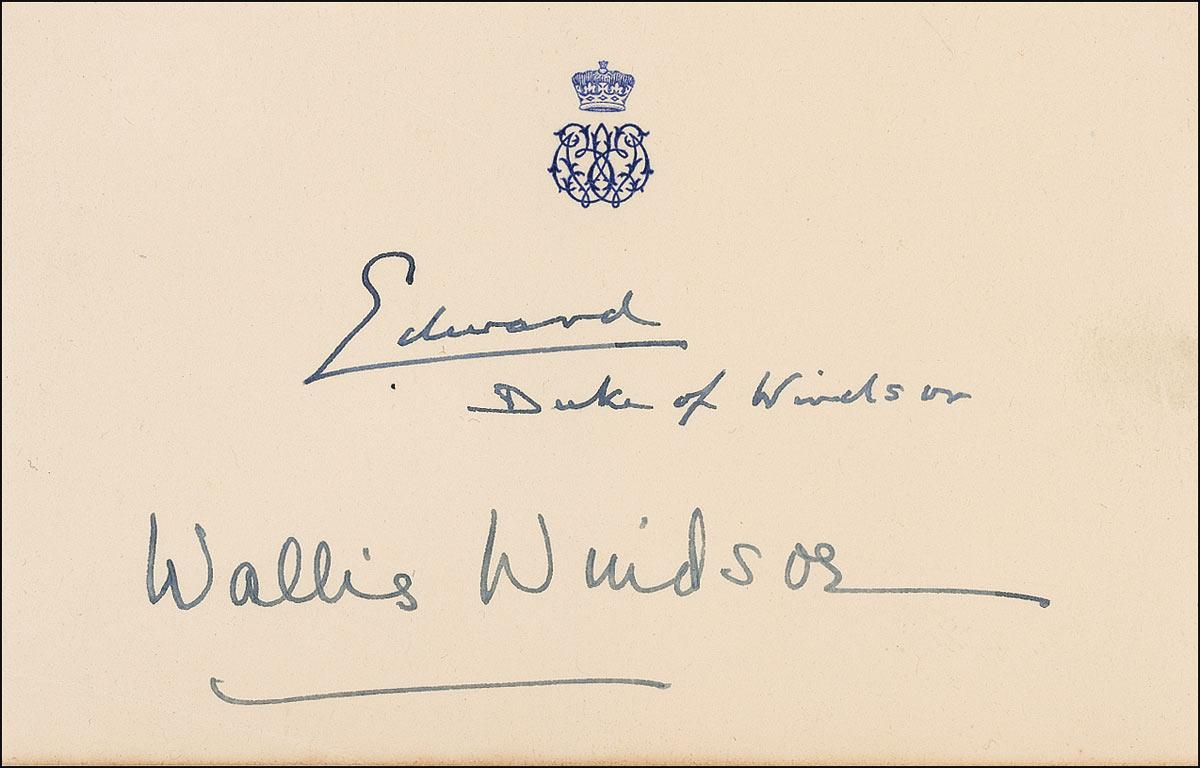 Edward
Duke of Windsor
Wallis Windsor